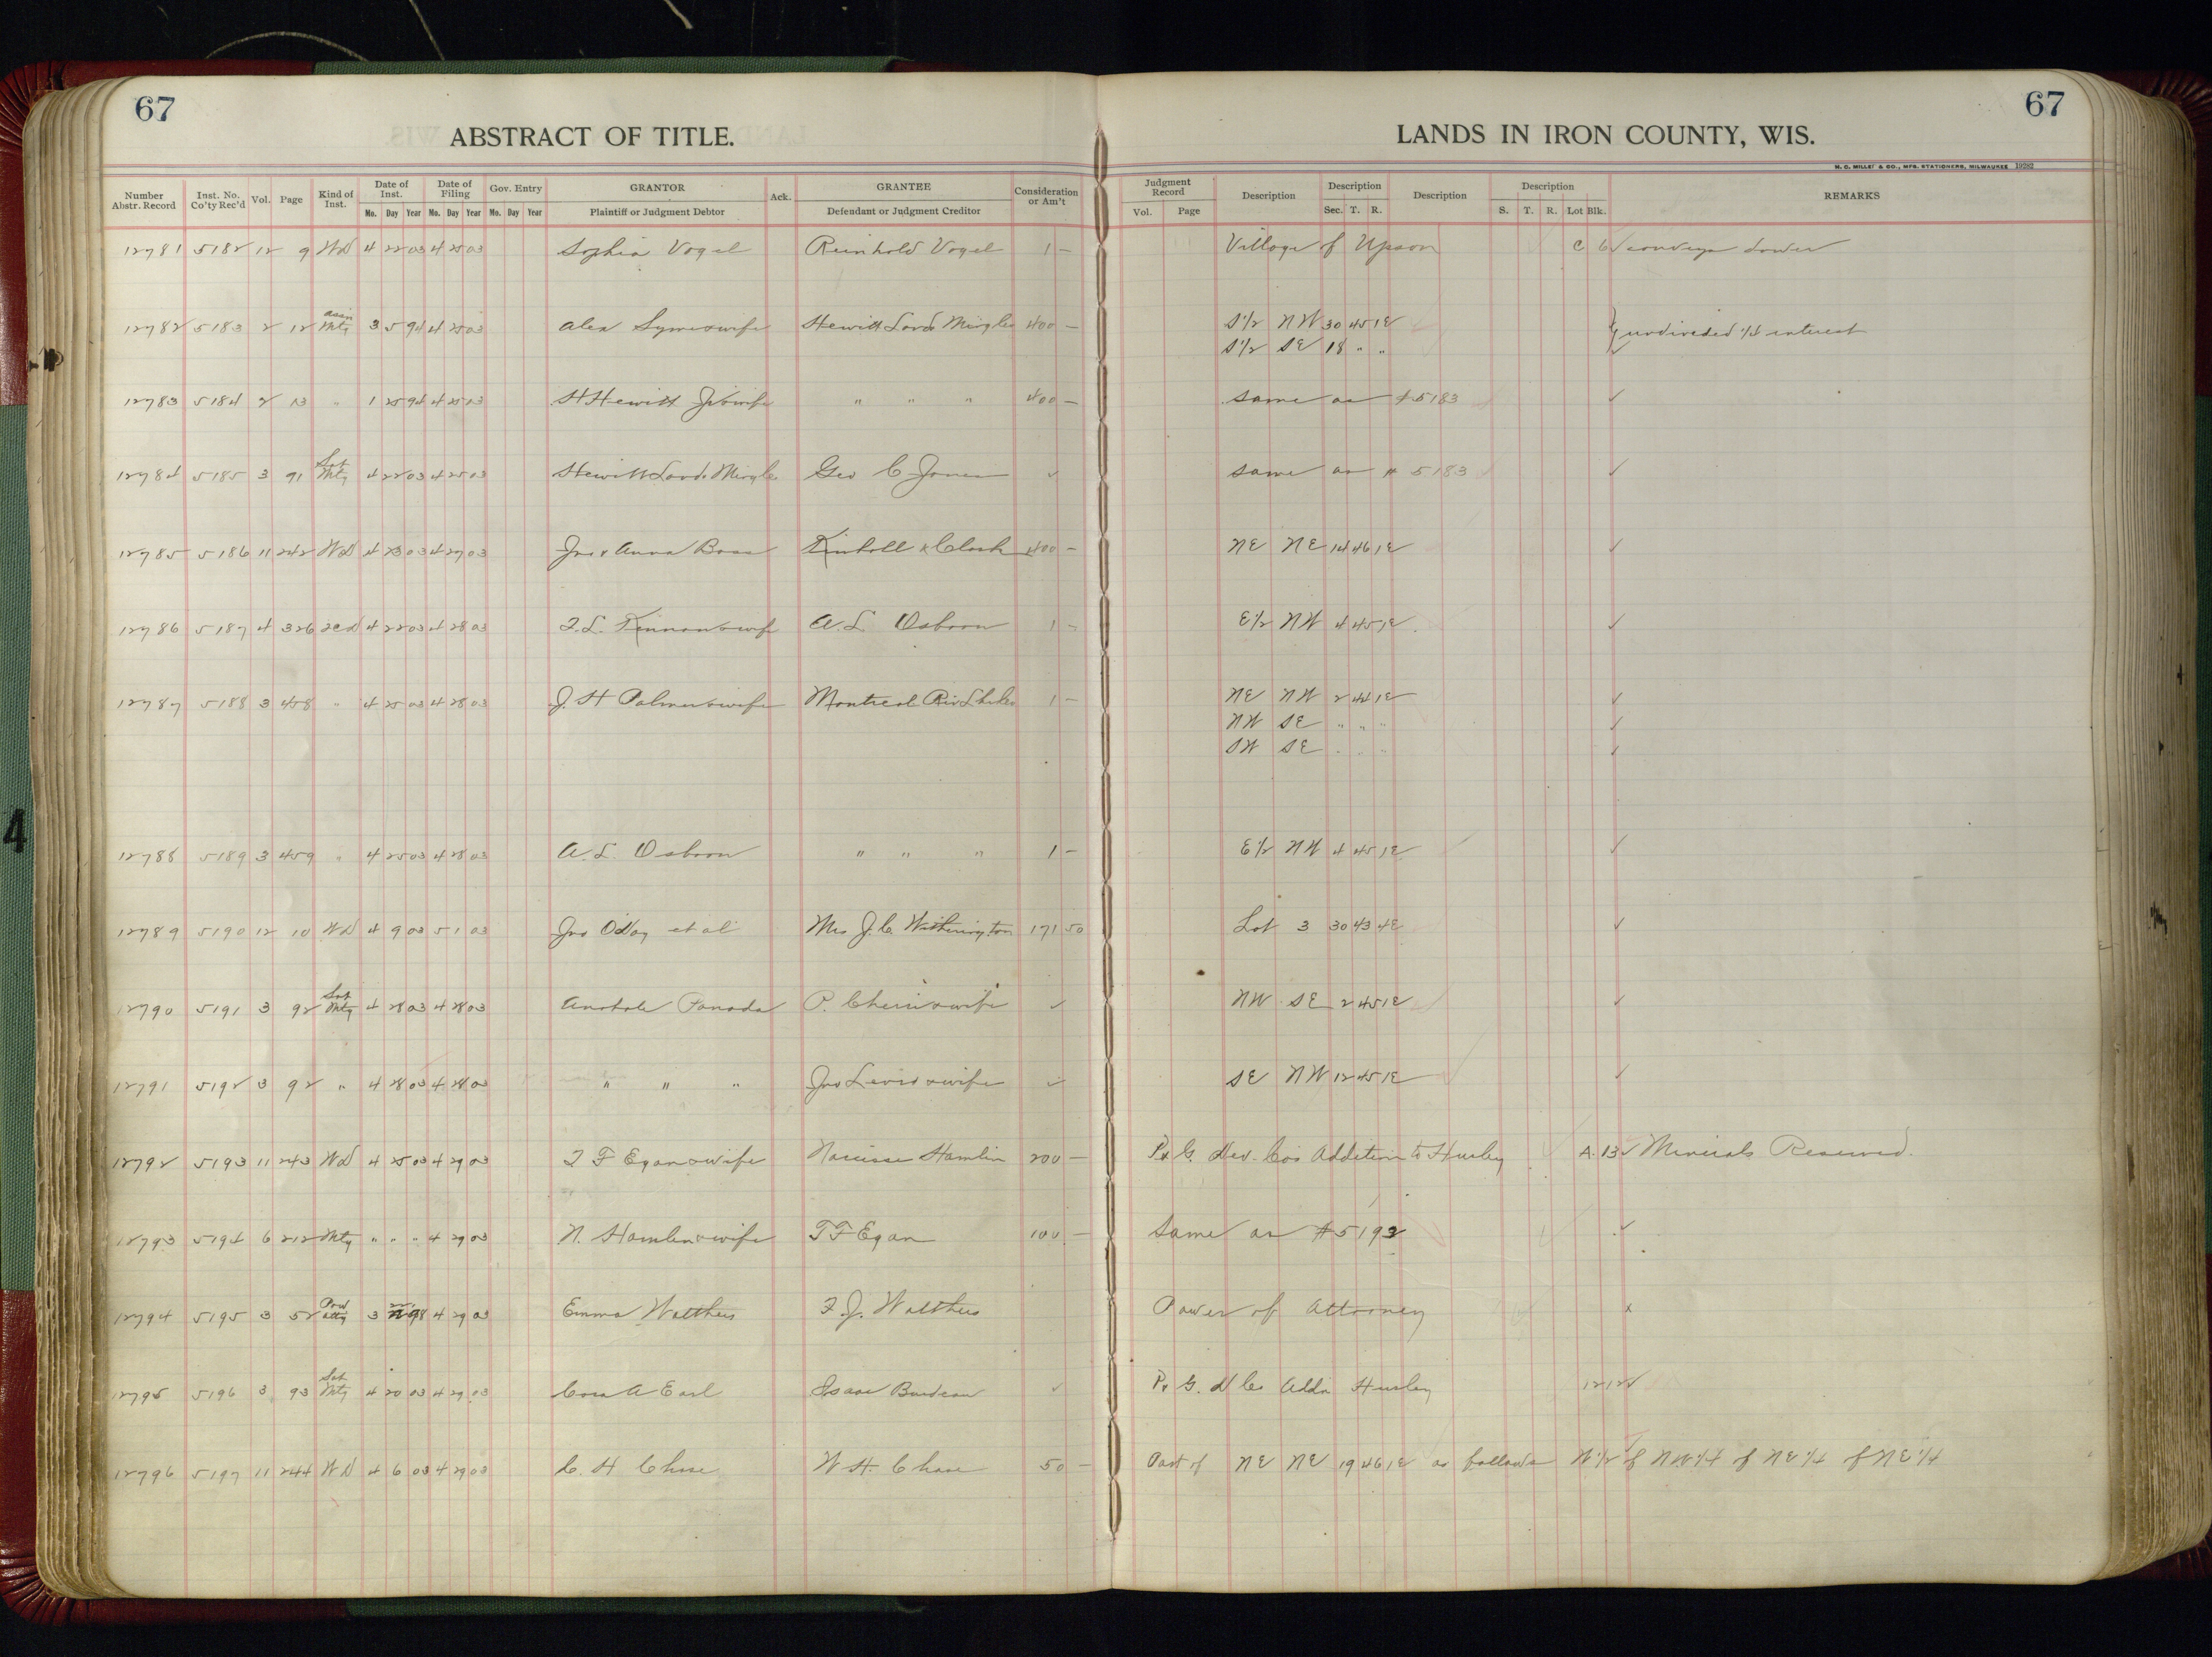 67
67
ABSTRACT OF TITLE.
LANDS IN IRON COUNTY, WIS.
H. C. MILLER & CO., MFG. STATIONERS, MILWAUKEE 19282
Number Abstr. Record | Inst. No. Co'ty Rec'd | Vol. | Page | Kind of Inst. | Date of Inst. Mo. Day Year | Date of Filing Mo. Day Year | Gov. Entry Mo. Day Year | GRANTOR Plaintiff or Judgment Debtor | Ack. | GRANTEE Defendant or Judgment Creditor | Consideration or Am't | Judgment Record Vol. Page | Description | Description Sec. T. R. | Description | Description S. T. R. Lot Blk. | REMARKS
12781 5182 12 9 WD 4 22 03 4 25 03 Sophia Vogel Reinhold Vogel 1 — Village of Upson C 6 ✓ conveys dower
12782 5183 2 12 assn Mtg 3 5 94 4 25 03 Alex Syme & wife Hewitt Land 400 — S 1/2 NW 30 45 1E undivided 1/4 interest
S 1/2 SE 18 " "
12783 5184 2 13 " 1 25 94 4 25 03 H Hewitt Jr & wife " " " 400 — same as # 5183 ✓
12784 5185 3 91 Sat Mtg 4 22 03 4 25 03 Hewitt Land Geo C Jones ✓ same as # 5183 ✓
12785 5186 11 242 WD 4 23 03 4 27 03 Jno & Anna Kimball & Clark 400 — NE NE 14 46 1E ✓
12786 5187 4 326 2CD 4 22 03 4 28 03 Kinnon & wife A. L. Osborn 1 — E 1/2 NW 4 45 1E ✓
12787 5188 3 458 " 4 25 03 4 28 03 J. H Palmer & wife Montreal Riv 1 — NE NW 2 44 1E ✓
NW SE " " " ✓
SW SE " " " ✓
12788 5189 3 459 " 4 25 03 4 28 03 A. L. Osborn " " " 1 — E 1/2 NW 4 45 1E ✓
12789 5190 12 10 WD 4 9 03 5 1 03 Jno O'Day et al Mrs J. C. Witherington 171 50 Lot 3 30 43 4E ✓
12790 5191 3 92 Sat Mtg 4 28 03 4 28 03 P. & wife ✓ NW SE 2 45 1E ✓
12791 5192 3 92 " 4 28 03 4 28 03 " " " Jno & wife ✓ SE NW 12 45 1E ✓
12792 5193 11 243 WD 4 25 03 4 29 03 F Egan & wife Narcisse Hamlin 200 — P & G. Dev. Co's Addition to Hurley A. 13 ✓ Minerals Reserved.
12793 5194 6 212 Mtg " " " 4 29 03 N. Hamlin & wife T F Egan 100 — Same as # 5193 ✓
12794 5195 3 52 Pow atty 3 98 4 29 03 Emma Walthers F. J. Walthers Power of Attorney x
12795 5196 3 93 Sat Mtg 4 20 03 4 29 03 Cora A Earl Isaac ✓ P & G. D Co Addn Hurley 12 12 ✓
12796 5197 11 244 WD 4 6 03 4 29 03 C. H Chase W H. Chase 50 — Part of NE NE 19 46 1E as follows N 1/2 of NW 1/4 of NE 1/4 of NE 1/4
4